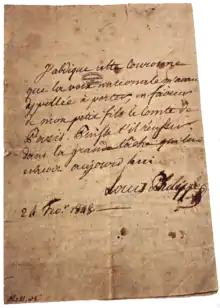 J'abdique cette couronne
que la voix nationale m'avait
appellée à porter, en faveur
de mon petit fils le Comte de
Paris. Puisse t'il réussir
dans la grande tâche qui lui
échoit aujourd'hui
Louis Philippe
24 Fev. 1848